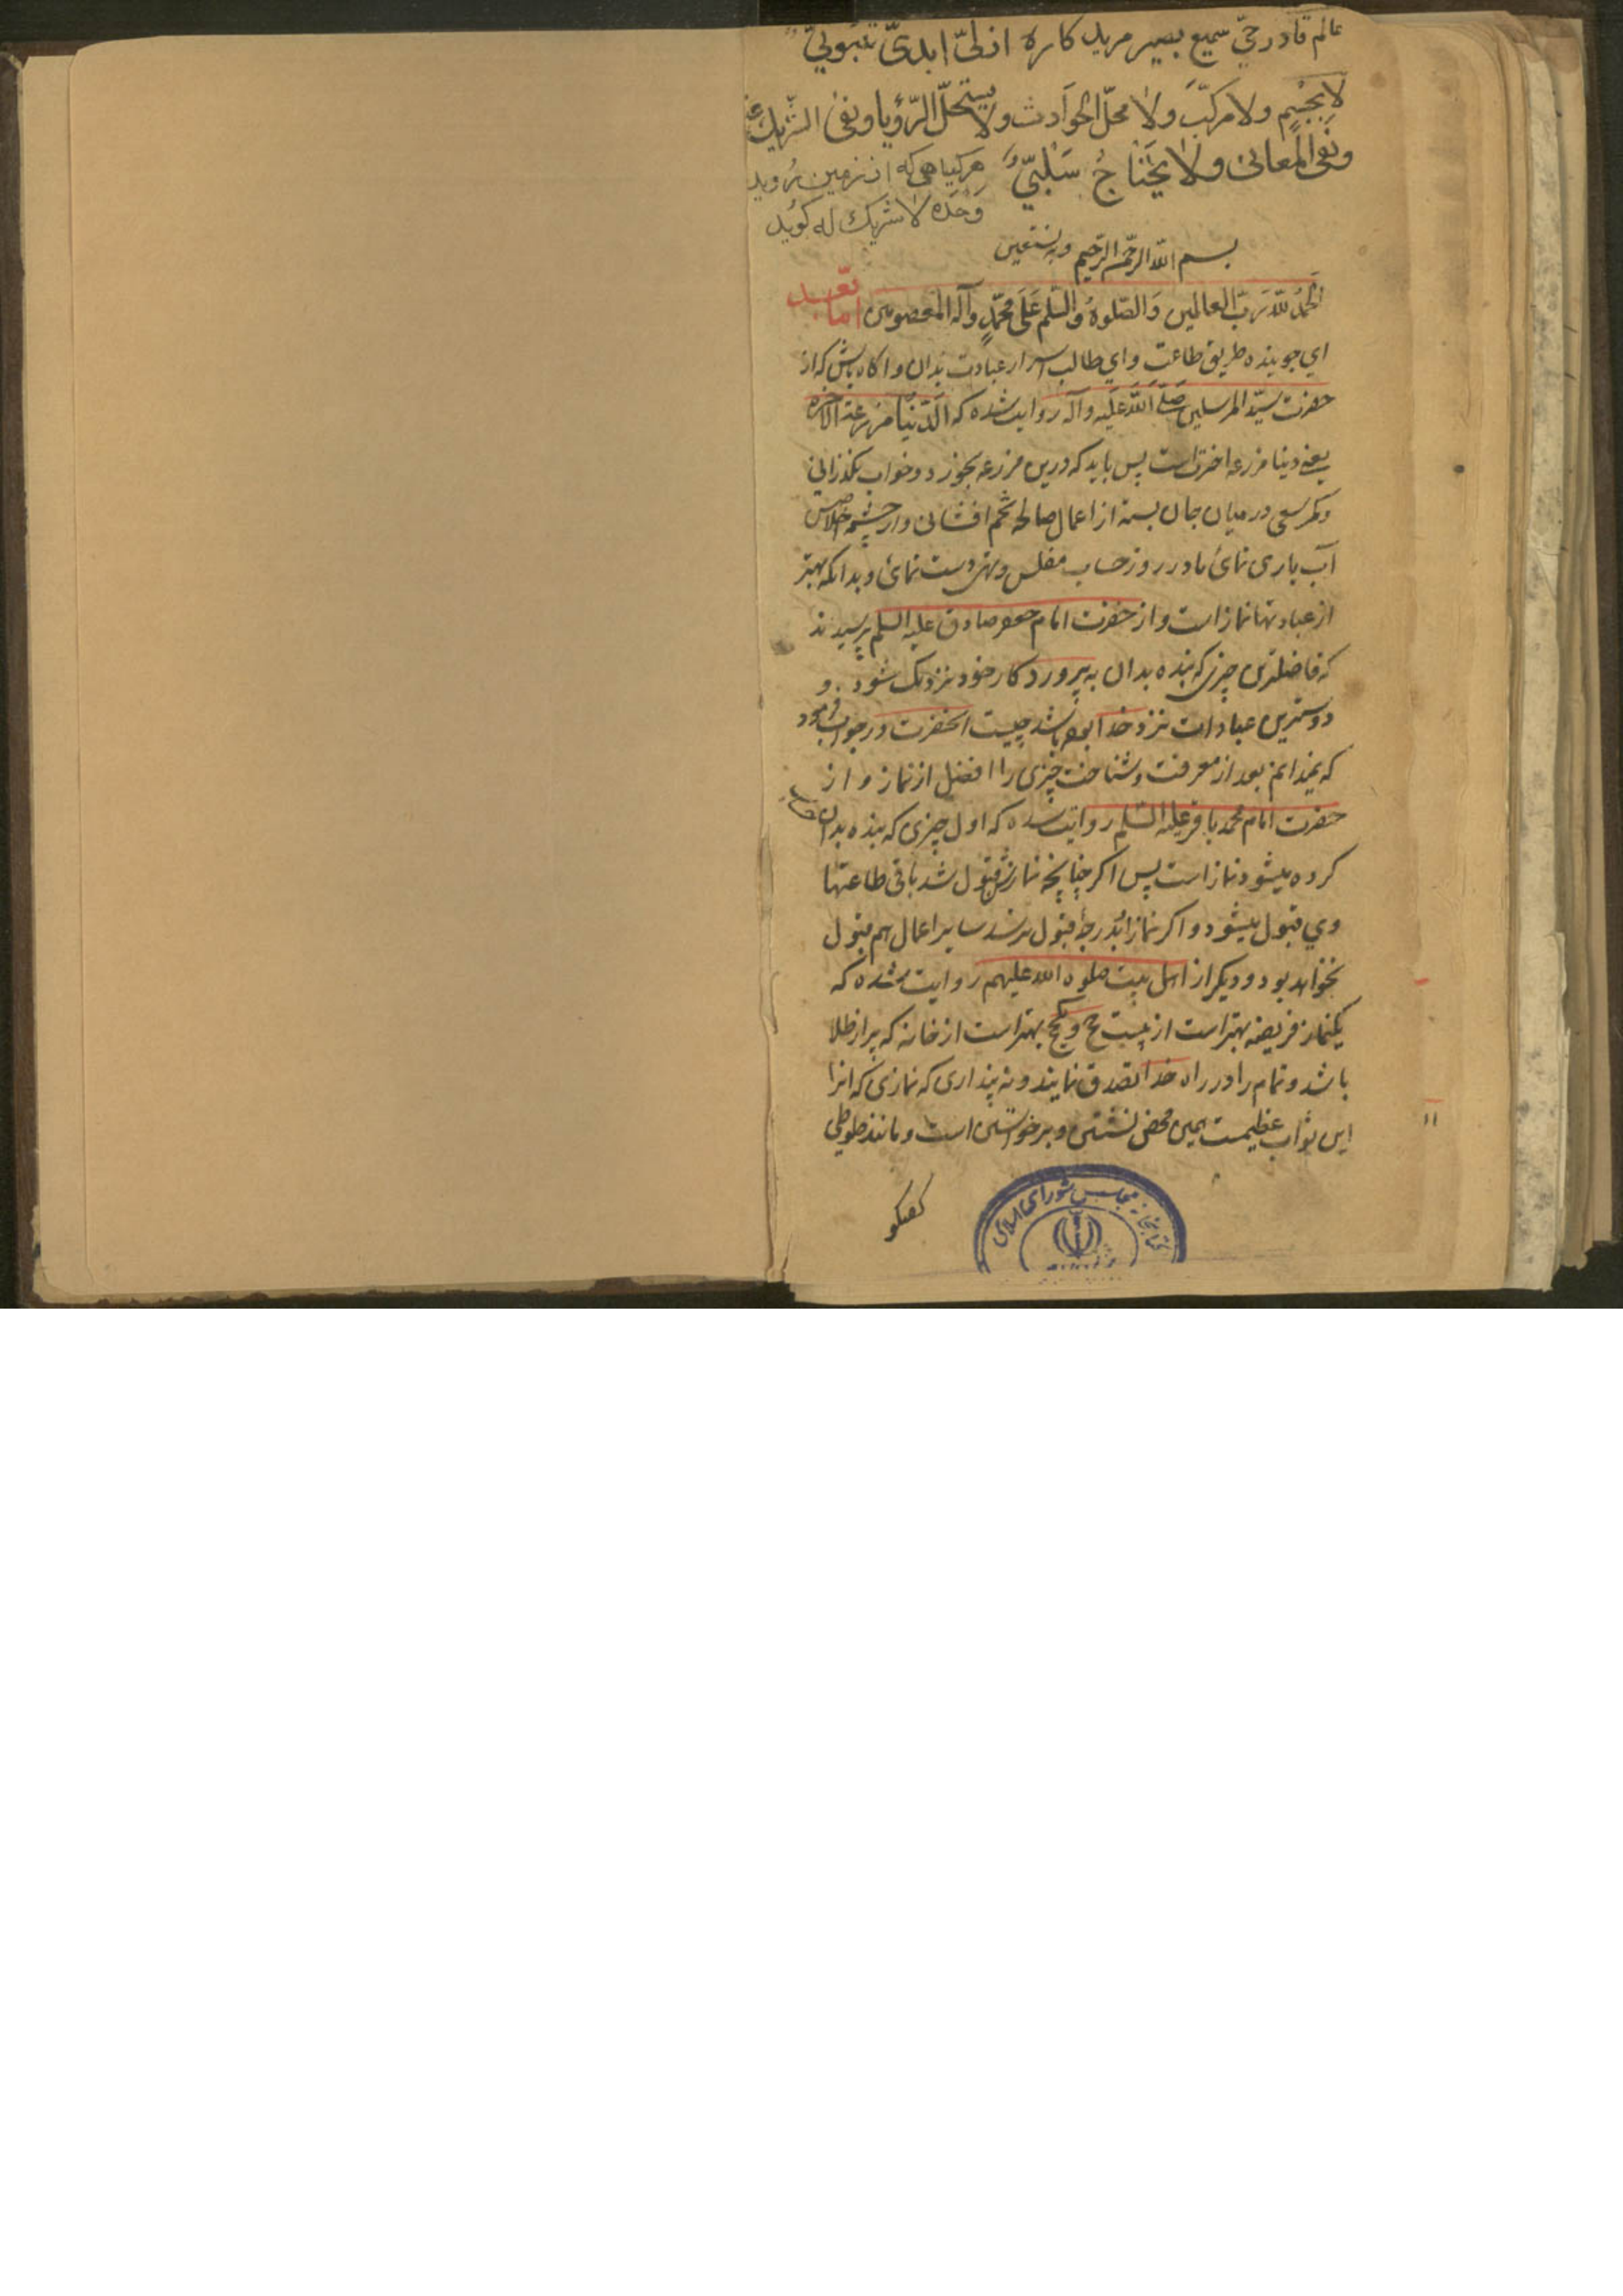 عالم قادر حیّ سمیع بصیر مرید کاره ازلیّ ابدیّ ثبوتیّ
لا بجسم ولا مرکّب ولا محلّ الحوادث ولا یستحلّ الرّؤیا ونفی الشّریك
ونفی المعانی ولا یحتاج سلبیّ هر کیاهی که از زمین روید
وحده لا شریك له کوید
بسم الله الرحمن الرحیم وبه نستعین
الحمد لله ربّ العالمین والصّلوة والسّلم علی محمّد وآله المعصومین امّا بعد
ای جوینده طریق طاعت و ای طالب اسرار عبادت بدان و اکاه باش که از
حضرت سیّد المرسلین صلّی الله علیه وآله روایت شده که الدّنیا مزرعة الآخره
یعنی دنیا مزرعه اخرتست پس باید که درین مزرعه بخورد و خواب نکذرانی
و کمر سعی در میان جان بسته از اعمال صالحه تخم افشانی و از چشمه اخلاص
آب یاری نمائی تا در روز حساب مفلس و تهی دست نمانی و بدانکه بهتر
از عبادتها نماز است و از حضرت امام جعفر صادق علیه السلم پرسیدند
که فاضلترین چیزی که بنده بدان به پروردکار خود نزدیک شود و
دوسترین عبادات نزد خدا بوده باشد چیست انحضرت در جواب فرمود
که نمیدانم بعد از معرفت و شناخت چیزی را افضل از نماز و از
حضرت امام محمد باقر علیه السّلم روایت شده که اول چیزی که بنده بدان حساب
کرده میشود نماز است پس اکر چنانچه نمازش قبول شد باقی طاعتها
وی قبول میشود و اکر نماز او بدرجهٔ قبول نرسد سایر اعمال هم قبول
نخواهد بود و دیکر از اهل بیت صلوة الله علیهم روایت شده که
یکنماز فریضه بهتر است از بیست حج و یکحج بهتر است از خانه که پر از طلا
باشد و تمام را در راه خدا تصدق نمایند و نه پنداری که نمازی که انرا
این ثواب عظیمست همین محض نشستن و برخواستن است و مانند طوطی
کفتکو
کتابخانه مجلس شورای اسلامی
۱۱